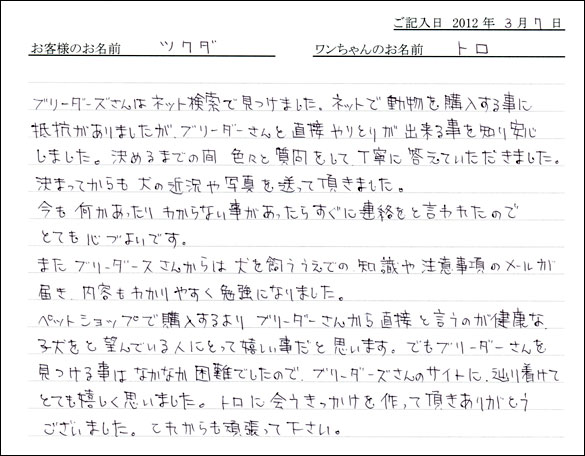 ご記入日 2012 年 3 月 7 日
お客様のお名前 ツクダ ワンちゃんのお名前 トロ
ブリーダーズさんはネット検索で見つけました。ネットで動物を購入する事に
抵抗がありましたが、ブリーダーさんと直接やりとりが出来る事を知り安心
しました。決めるまでの間 色々と質問をして、丁寧に答えていただきました。
決まってからも犬の近況や写真を送って頂きました。
今も何かあったり わからない事があったらすぐに連絡をと言われたので
とても心づよいです。
また ブリーダースさんからは犬を飼ううえでの知識や注意事項のメールが
届き、内容もわかりやすく勉強になりました。
ペットショップで購入するより ブリーダーさんから直接と言うのが健康な
子犬をと望んでいる人にとって嬉しい事だと思います。でもブリーダーさんを
見つける事は なかなか困難でしたので、ブリーダーズさんのサイトに、辿り着けて
とても嬉しく思いました。トロに会うきっかけを作って頂きありがとう
ございました。これからも頑張って下さい。